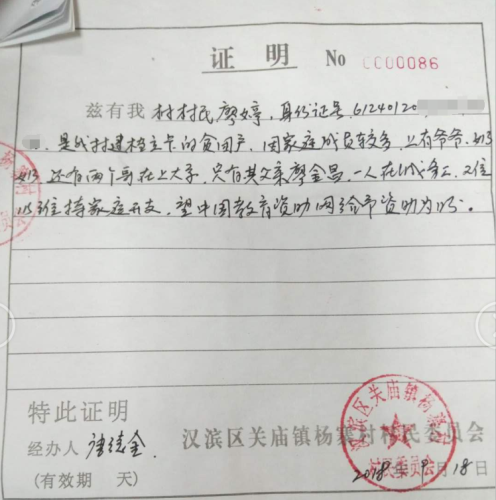 证 明 No 0000086
兹有我村村民廖婷，身份证号，61240120
，是我村建档立卡的贫困户，因家庭成员较多，上有爷爷、奶
奶，还有两个哥在上大学，只有其父亲廖金昌，一人在外务工，
维持家庭开支，望中国教育资助网给予资助为盼。
特此证明
经办人
汉滨区关庙镇杨寨村村民委员会
(有效期 天)
2018年9月18日
汉滨区关庙镇杨寨村
村民委员会